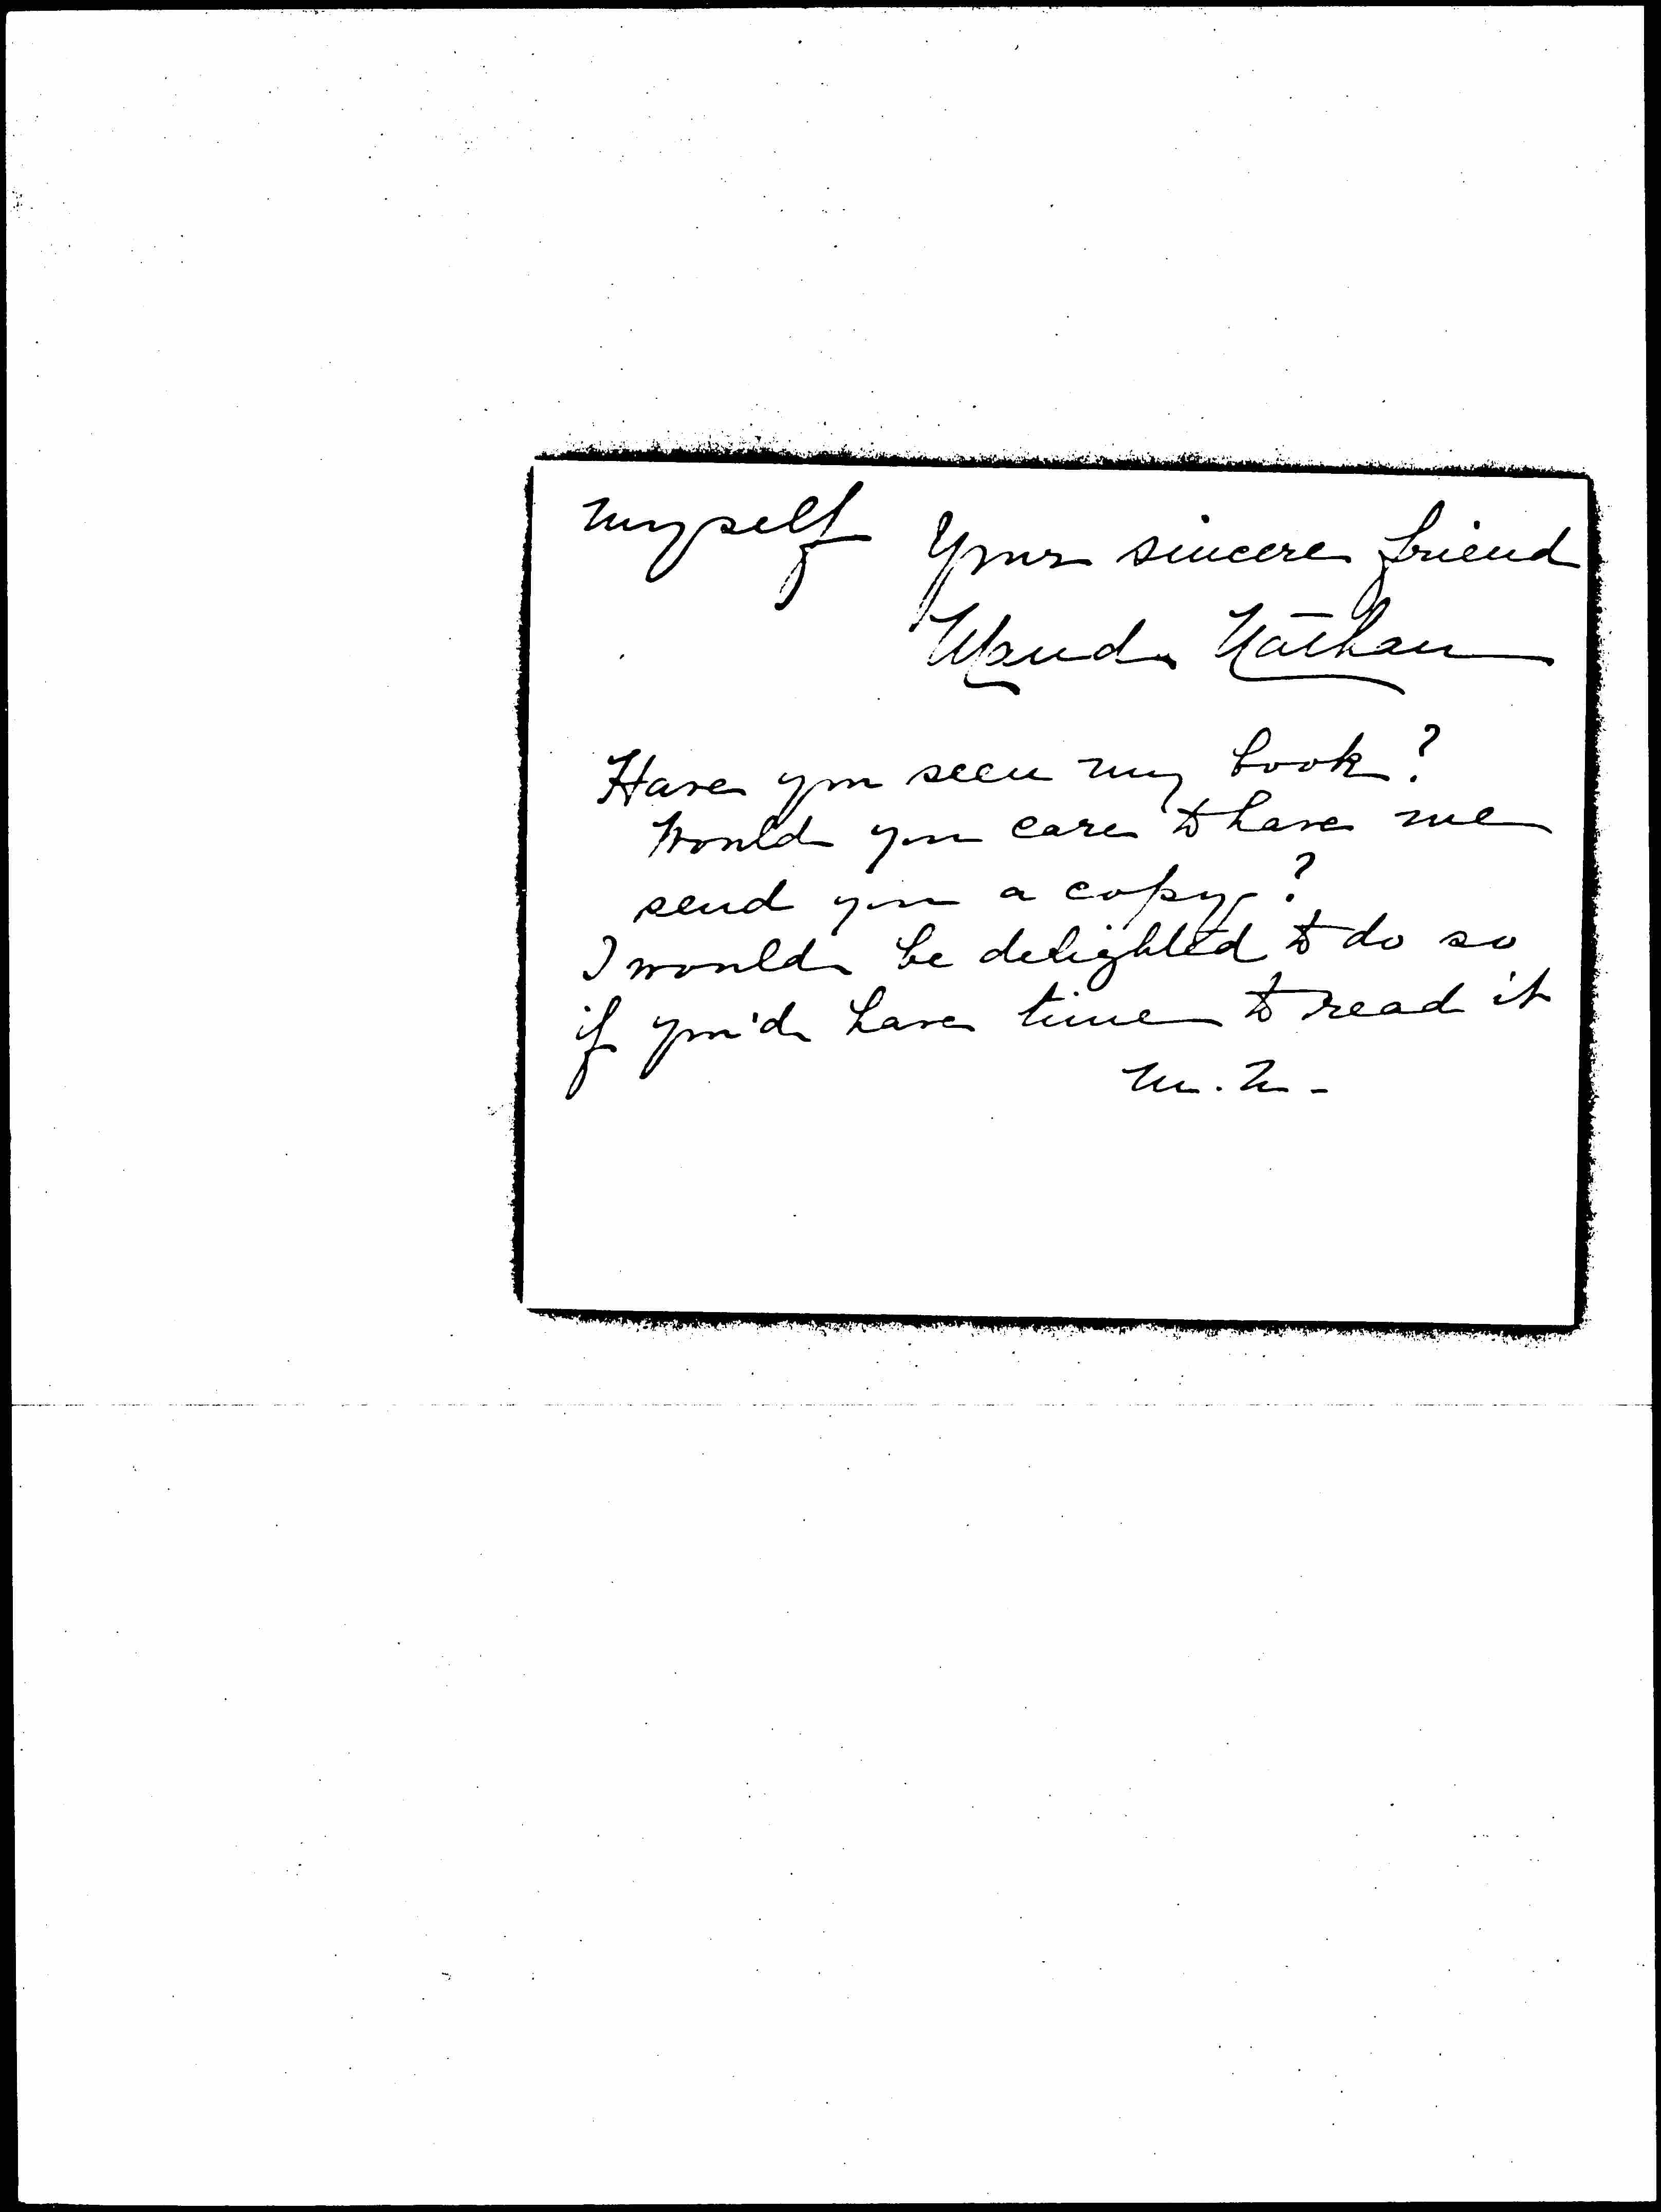 myself
Your sincere friend
Maud Nathan
Have you seen my book?
Would you care to have me
send you a copy?
I would be delighted to do so
if you'd have time to read it
M.N-